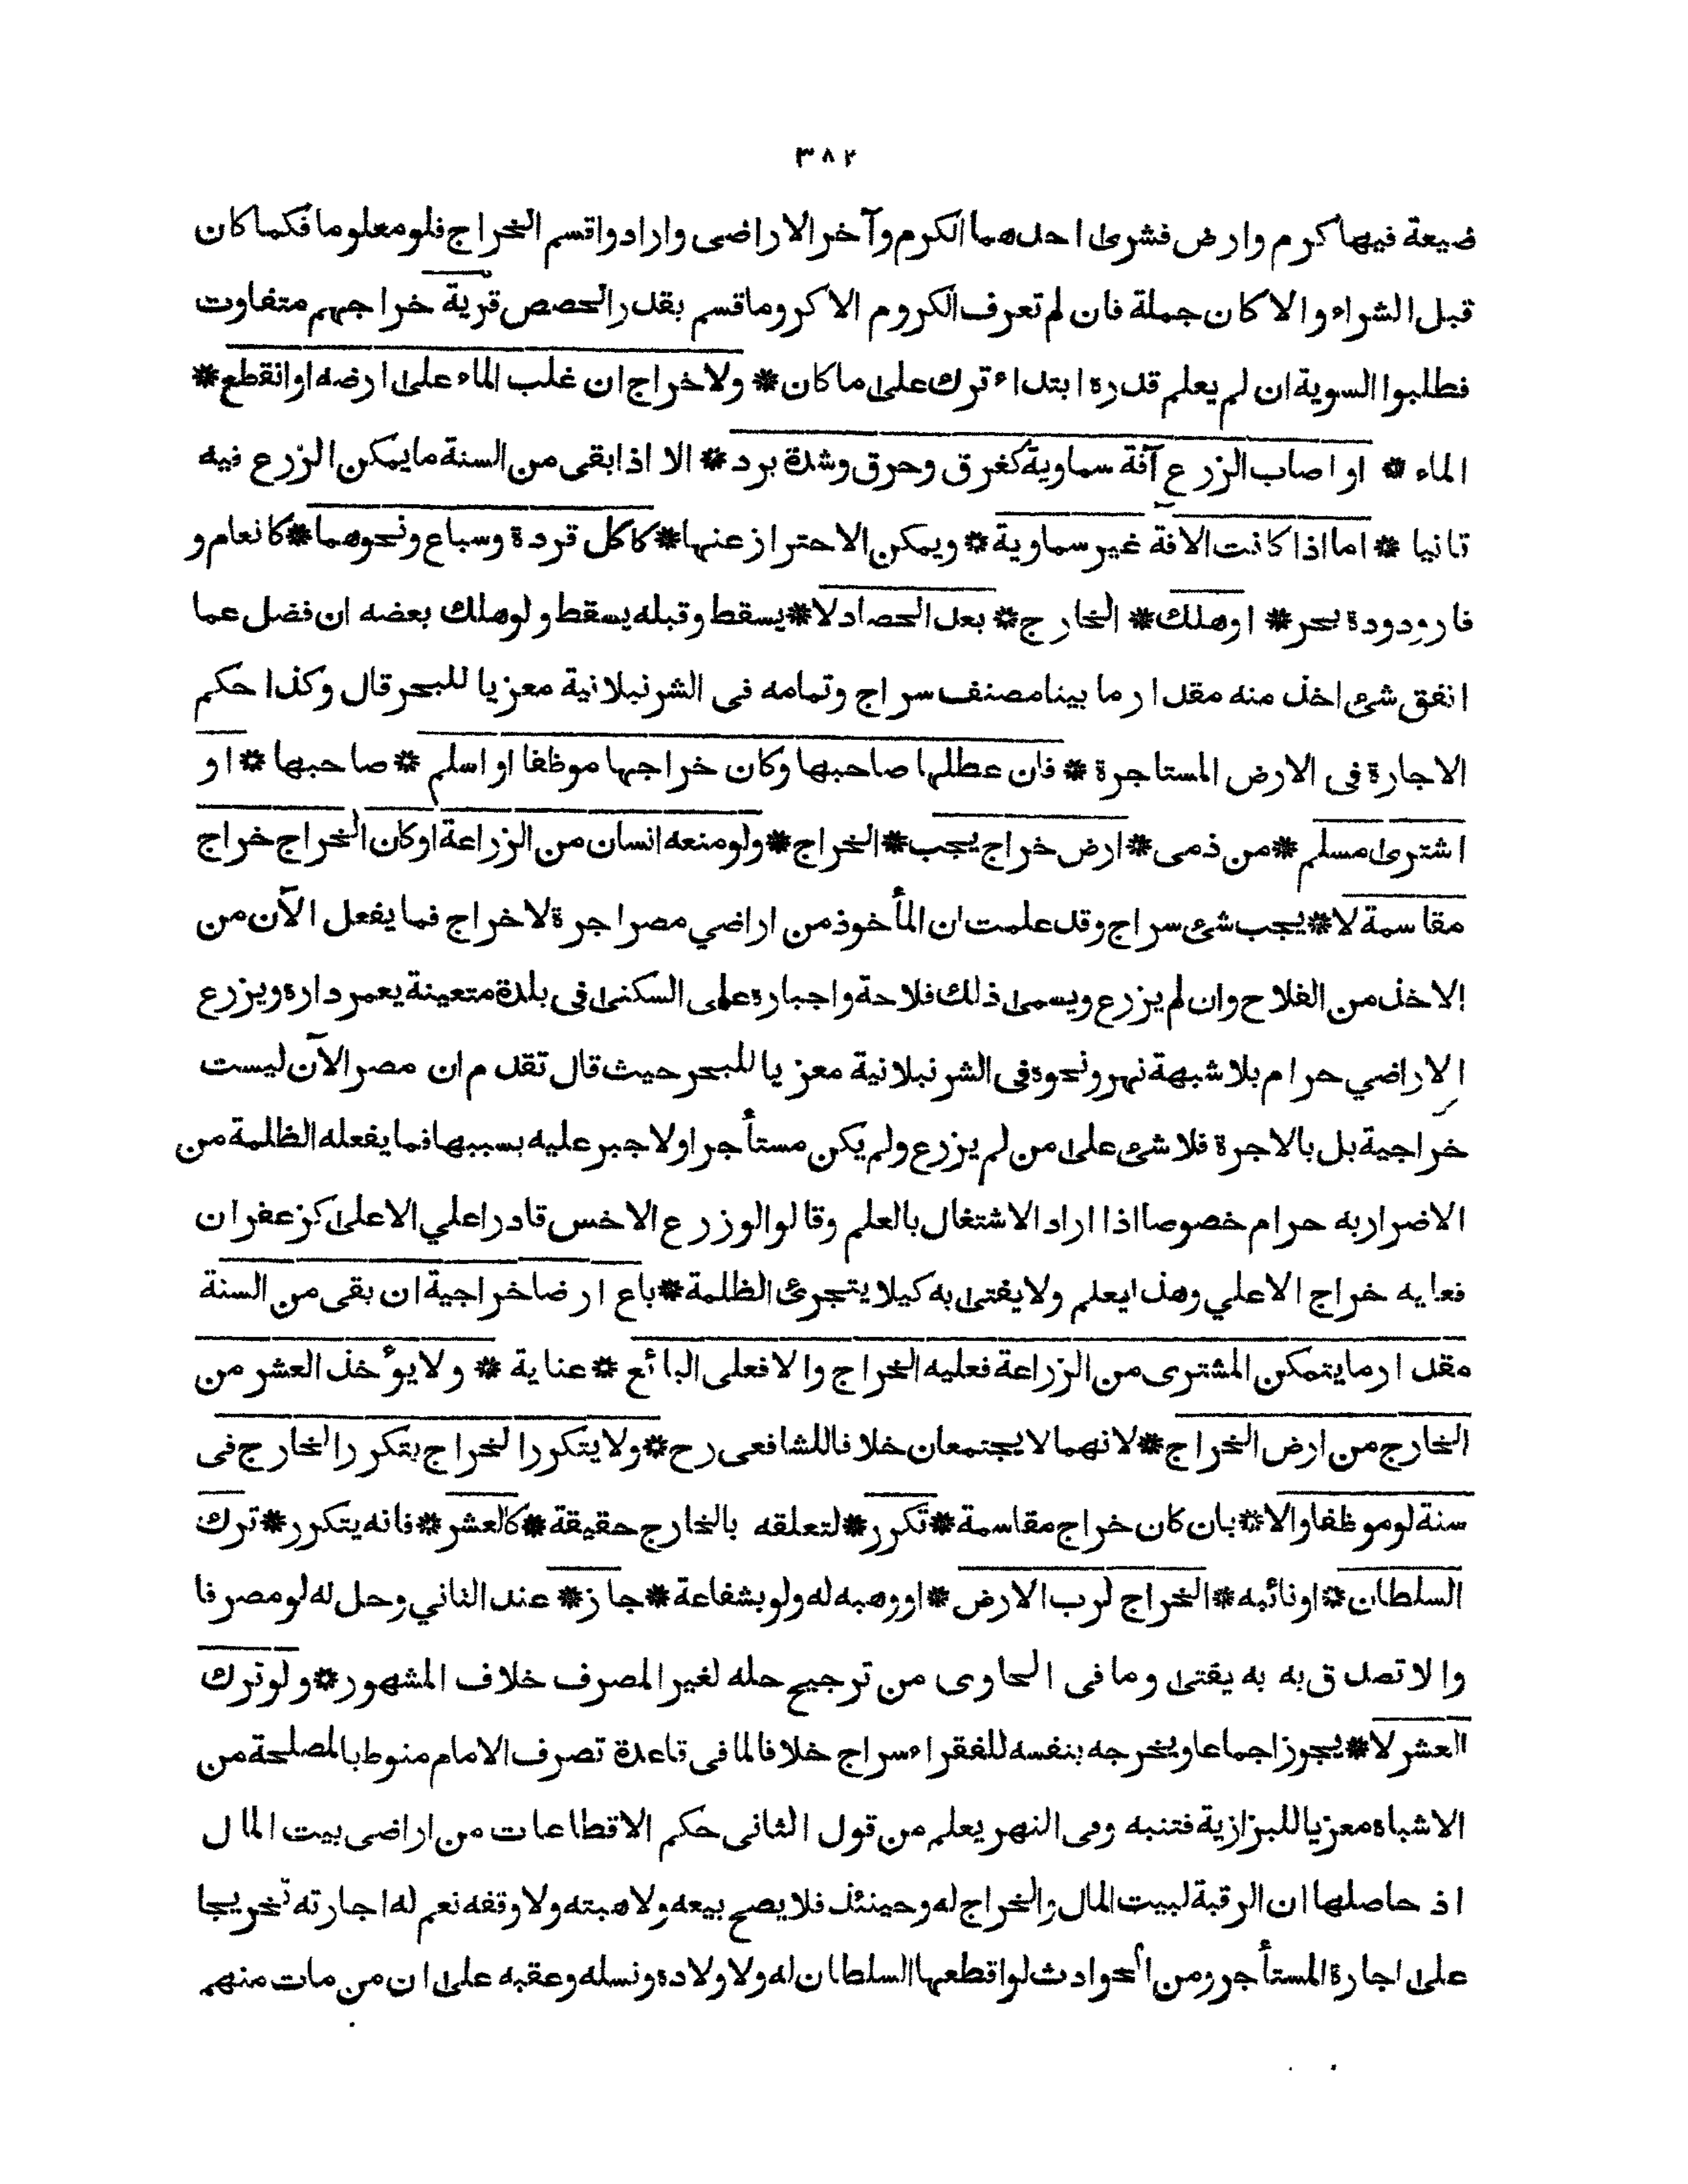 ٣٨٢
ضيعة فيها كرم وارض فشرى احدهما الكرم وآخر الاراضى وارادوا قسم الخراج فلو معلوما فكما كان
قبل الشراء والا كان جملة فان لم تعرف الكروم الا كروما قسم بقدر الحصص قرية خراجهم متفاوت
فطلبوا السوية ان لم يعلم قدره ابتداء ترك على ما كان * ولا خراج ان غلب الماء على ارضه او انقطع *
الماء * او اصاب الزرع آفة سماوية كغرق وحرق وشدة برد * الا اذا بقى من السنة ما يمكن الزرع فيه
ثانيا * اما اذا كانت الآفة غير سماوية * ويمكن الاحتراز عنها * كاكل قردة وسباع ونحوهما * كانعام و
فارودودة بحر * او هلك * الخارج * بعد الحصاد لا * يسقط وقبله يسقط ولو هلك بعضه ان فضل عما
انفق شئ اخذ منه مقدار ما بينا مصنف سراج وتمامه فى الشرنبلانية معزيا للبحر قال وكذا حكم
الاجارة فى الارض المستاجرة * فان عطلها صاحبها وكان خراجها موظفا او اسلم * صاحبها * او
اشترى مسلم * من ذمى * ارض خراج يجب * الخراج * ولو منعه انسان من الزراعة او كان الخراج خراج
مقاسمة لا * يجب شئ سراج وقد علمت ان المأخوذ من اراضي مصر اجرة لا خراج فما يفعل الآن من
الاخذ من الفلاح وان لم يزرع ويسمى ذلك فلاحة واجباره على السكنى فى بلدة متعينة يعمر داره ويزرع
الاراضي حرام بلا شبهة نهر ونحوه فى الشرنبلانية معزيا للبحر حيث قال تقدم ان مصر الآن ليست
خراجية بل بالاجرة فلا شئ على من لم يزرع ولم يكن مستأجرا ولا جبر عليه بسببها فما يفعله الظلمة من
الاضرار به حرام خصوصا اذا اراد الاشتغال بالعلم وقالوا لو زرع الاخس قادرا علي الاعلى كزعفران
فعليه خراج الاعلي وهذا يعلم ولا يفتى به كيلا يتجرئ الظلمة * باع ارضا خراجية ان بقى من السنة
مقدار ما يتمكن المشترى من الزراعة فعليه الخراج والا فعلى البائع * عناية * ولا يؤخذ العشر من
الخارج من ارض الخراج * لانهما لا يجتمعان خلافا للشافعى رح * ولا يتكرر الخراج بتكرر الخارج فى
سنة لو موظفا والا * بان كان خراج مقاسمة * تكرر * لتعلقه بالخارج حقيقة * كالعشر * فانه يتكرر * ترك
السلطان * او نائبه * الخراج لرب الارض * او وهبه له ولو بشفاعة * جاز * عند الثاني وحل له لو مصرفا
والا تصدق به به يفتى وما فى الحاوى من ترجيح حله لغير المصرف خلاف المشهور * ولو ترك
العشر لا * يجوز اجماعا ويخرجه بنفسه للفقراء سراج خلافا لما فى قاعدة تصرف الامام منوط بالمصلحة من
الاشباه معزيا للبزازية فتنبه وفى النهر يعلم من قول الثانى حكم الاقطاعات من اراضى بيت المال
اذ حاصلها ان الرقبة لبيت المال والخراج له وحينئذ فلا يصح بيعه ولا هبته ولا وقفه نعم له اجارته تخريجا
على اجارة المستأجر ومن الحوادث لو اقطعها السلطان له ولاولاده ونسله وعقبه على ان من مات منهم